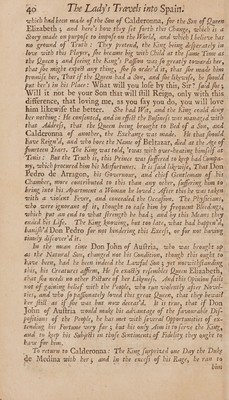 40 The Lady's Travels into Spain.
which had been made of the Son of Calderonna, for the Son of Queen
Elizabeth; and here's how they set forth this Change, which is a
Story made on purpose to impose on the World, and which I believe has
no ground of Truth: They pretend, the King being desperately in
love with this Player, she became big with Child at the same Time as
the Queen; and seeing the King's Passion was so greatly towards her,
that she might expect any thing, she so order'd it, that she made him
promise her, That if the Queen had a Son, and she likewise, he should
put her's in his Place: What will you lose by this, Sir? said she;
Will it not be your Son that will still Reign, only with this
difference, that loving me, as you say you do, you will love
him likewise the better. She had Wit, and the King could deny
her nothing: He consented, and in effect the Business was managed with
that Address, that the Queen being brought to Bed of a Son, and
Calderonna of another, the Exchange was made. He that should
have Reign'd, and who bare the Name of Beltazar, died at the Age of
fourteen Years. The King was told, 'twas with over-heating himself at
Tenis: But the Truth is, this Prince was suffered to keep bad Compa-
ny, which procured him his Misfortunes. It is said likewise, That Don
Pedro de Arragon, his Governour, and chief Gentleman of his
Chamber, more contributed to this than any other, suffering him to
bring into his Apartment a Woman he loved: After this he was taken
with a violent Fever, and concealed the Occasion. The Physicians,
who were ignorant of it, thought to ease him by frequent Bleeding,
which put an end to what strength he had; and by this Means they
ended his Life. The King knowing, but too late, what had happen'd,
banish'd Don Pedro for not hindering this Excess, or for not having
timely discover'd it.
In the mean time Don John of Austria, who was brought up
as the Natural Son, changed not his Condition, though this ought to
have been, had he been indeed the Lawful Son; yet notwithstanding
this, his Creatures affirm, He so exactly resembles Queen Elizabeth,
that she needs no other Picture of her Likeness. And this Opinion fails
not of gaining belief with the People, who run violently after Novel-
ties, and who so passionately loved this great Queen, that they bewail
her still as if she was but now deceas'd. It is true, that if Don
John of Austria would make his advantage of the favourable Dis-
positions of the People, he has met with several Opportunities of ex-
tending his Fortune very far; but his only Aim is to serve the King,
and to keep his Subjects in those Sentiments of Fidelity they ought to
have for him.
To return to Calderonna: The King surprised one Day the Duke
de Medina with her; and in the excess of his Rage, he ran to
him